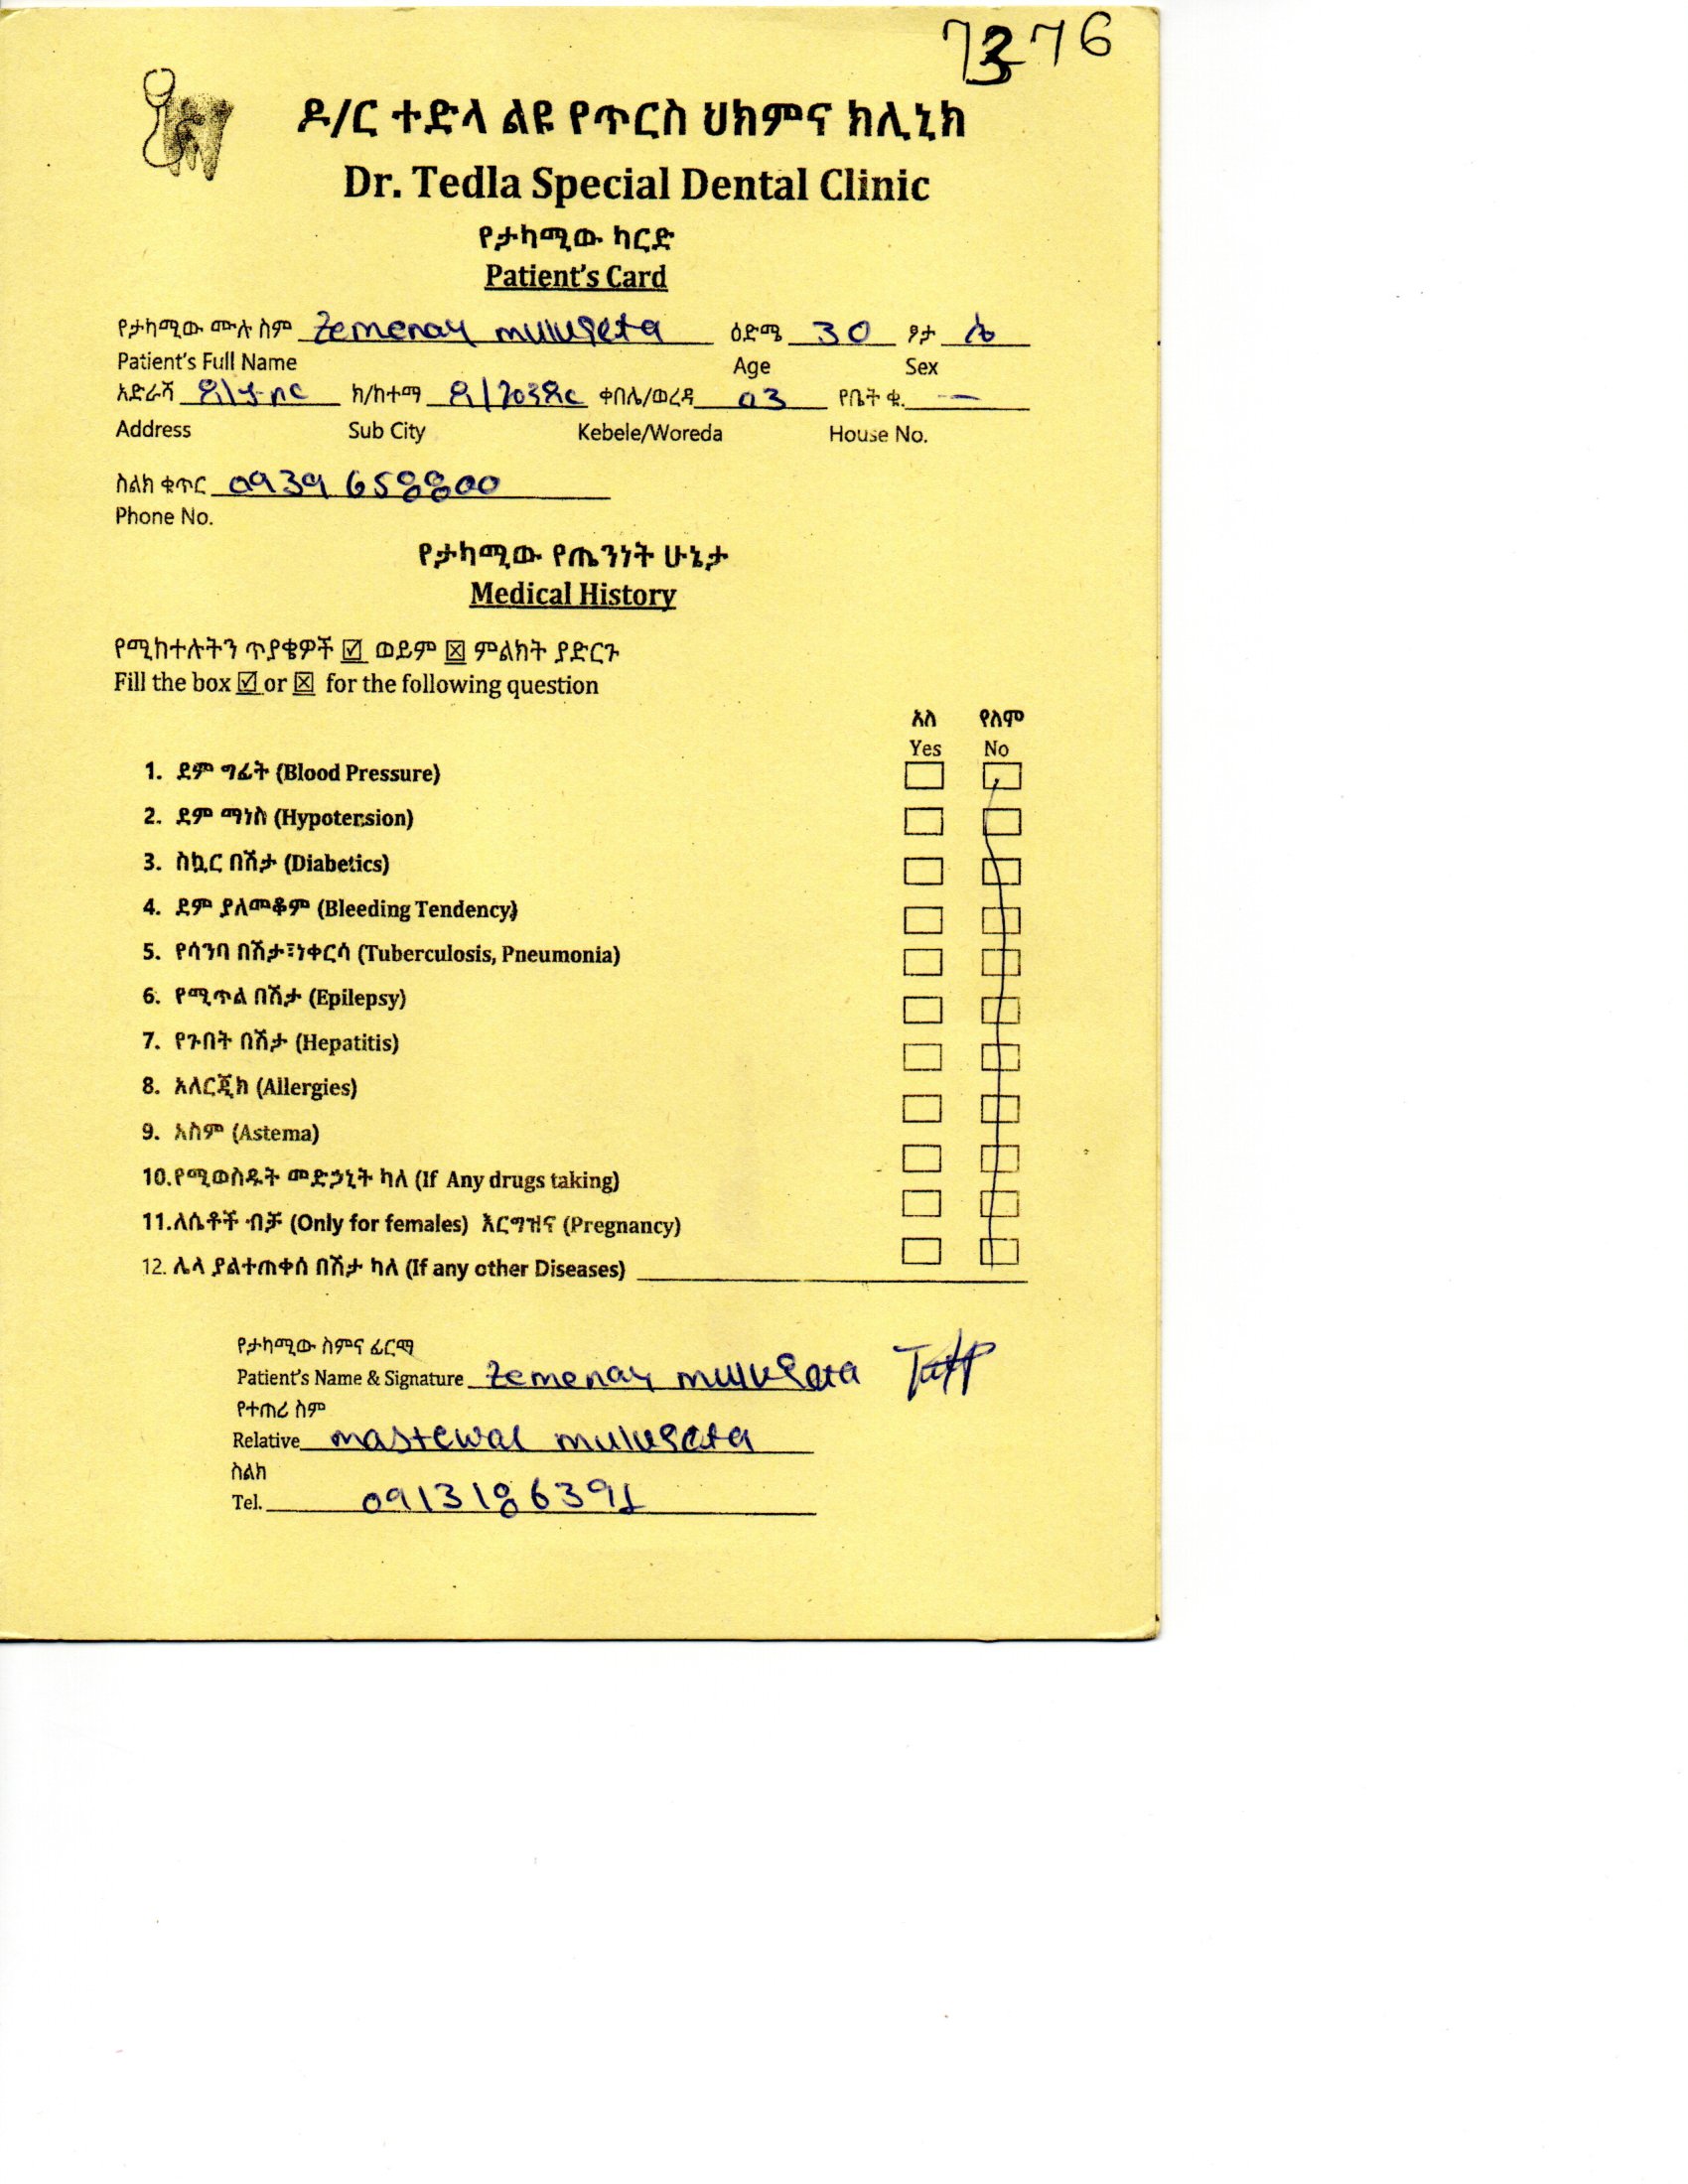 7376
ዶ/ር ተድላ ልዩ የጥርስ ህክምና ክሊኒክ
Dr. Tedla Special Dental Clinic
የታካሚው ካርድ
Patient's Card
የታካሚው ሙሉ ስም Zemenay mulugeta ዕድሜ 30 ፆታ ሴ
Patient's Full Name Age Sex
አድራሻ ክ/ከተማ ቀበሌ/ወረዳ 03 የቤት ቁ. —
Address Sub City Kebele/Woreda House No.
ስልክ ቁጥር 0939 658800
Phone No.
የታካሚው የጤንነት ሁኔታ
Medical History
የሚከተሉትን ጥያቄዎች ☑ ወይም ☒ ምልክት ያድርጉ
Fill the box ☑ or ☒ for the following question
አለ የለም
Yes No
1. ደም ግፊት (Blood Pressure)
2. ደም ማነስ (Hypotension)
3. ስኳር በሽታ (Diabetics)
4. ደም ያለመቆም (Bleeding Tendency)
5. የሳንባ በሽታ፣ነቀርሳ (Tuberculosis, Pneumonia)
6. የሚጥል በሽታ (Epilepsy)
7. የጉበት በሽታ (Hepatitis)
8. አለርጂክ (Allergies)
9. አስም (Astema)
10.የሚወስዱት መድኃኒት ካለ (If Any drugs taking)
11.ለሴቶች ብቻ (Only for females) እርግዝና (Pregnancy)
12. ሌላ ያልተጠቀሰ በሽታ ካለ (If any other Diseases)
የታካሚው ስምና ፊርማ
Patient's Name & Signature Zemenay mulugeta
የተጠሪ ስም
Relative mastewal mulugeta
ስልክ
Tel. 0913186391